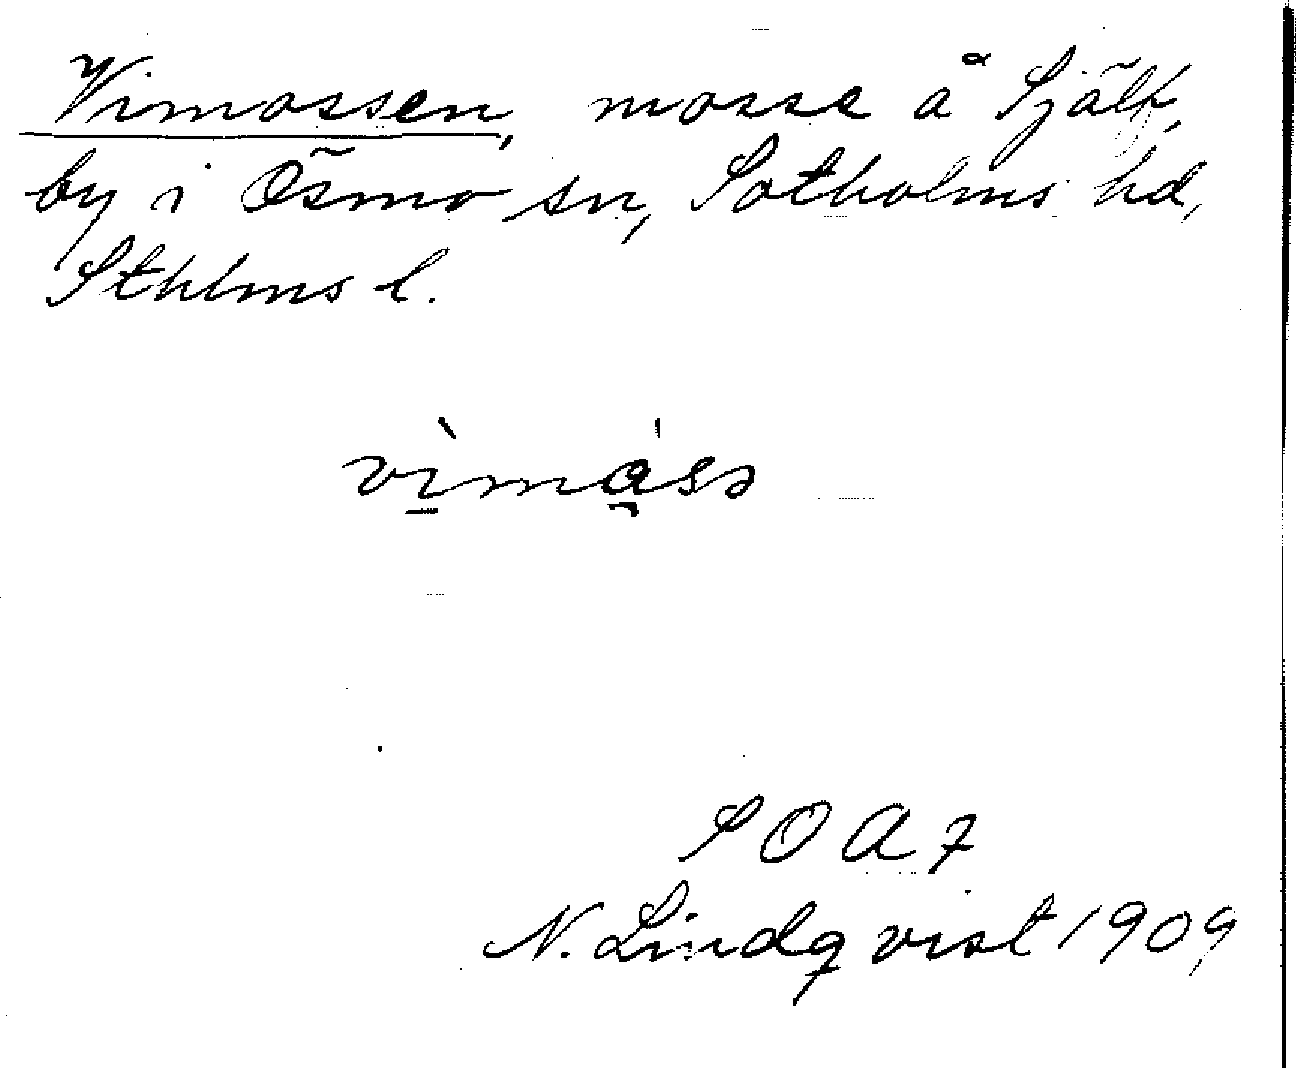 Vimossen, mosse å Själf-
by i Ösmo sn, Sotholms hd,
Sthlms l.
vi̠màss
S O A 7
N. Lindqvist 1909